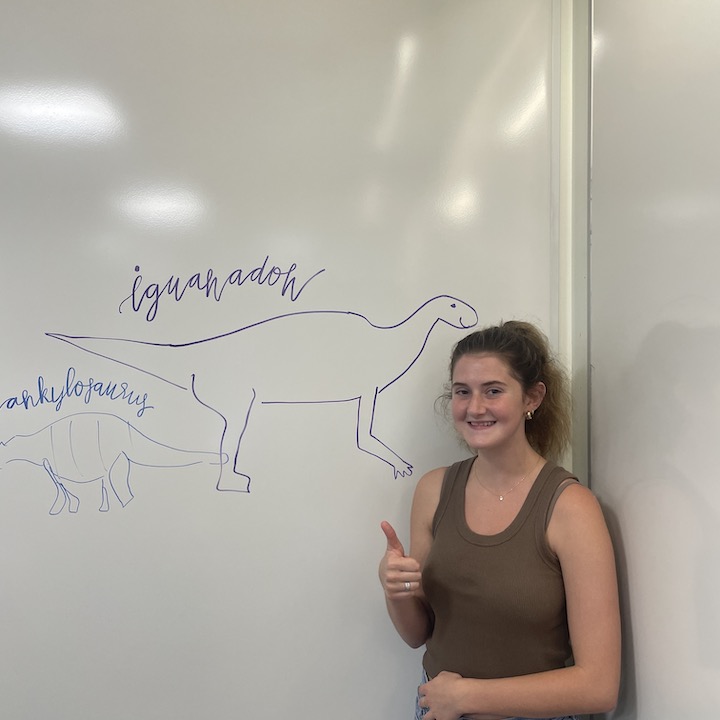 iguanadon
ankylosaurus